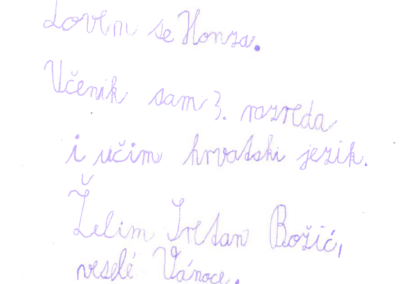 Zovem se Honza.
Učenik sam 3. razreda
i učim hrvatski jezik.
Želim Sretan Božić,
veselé Vánoce.